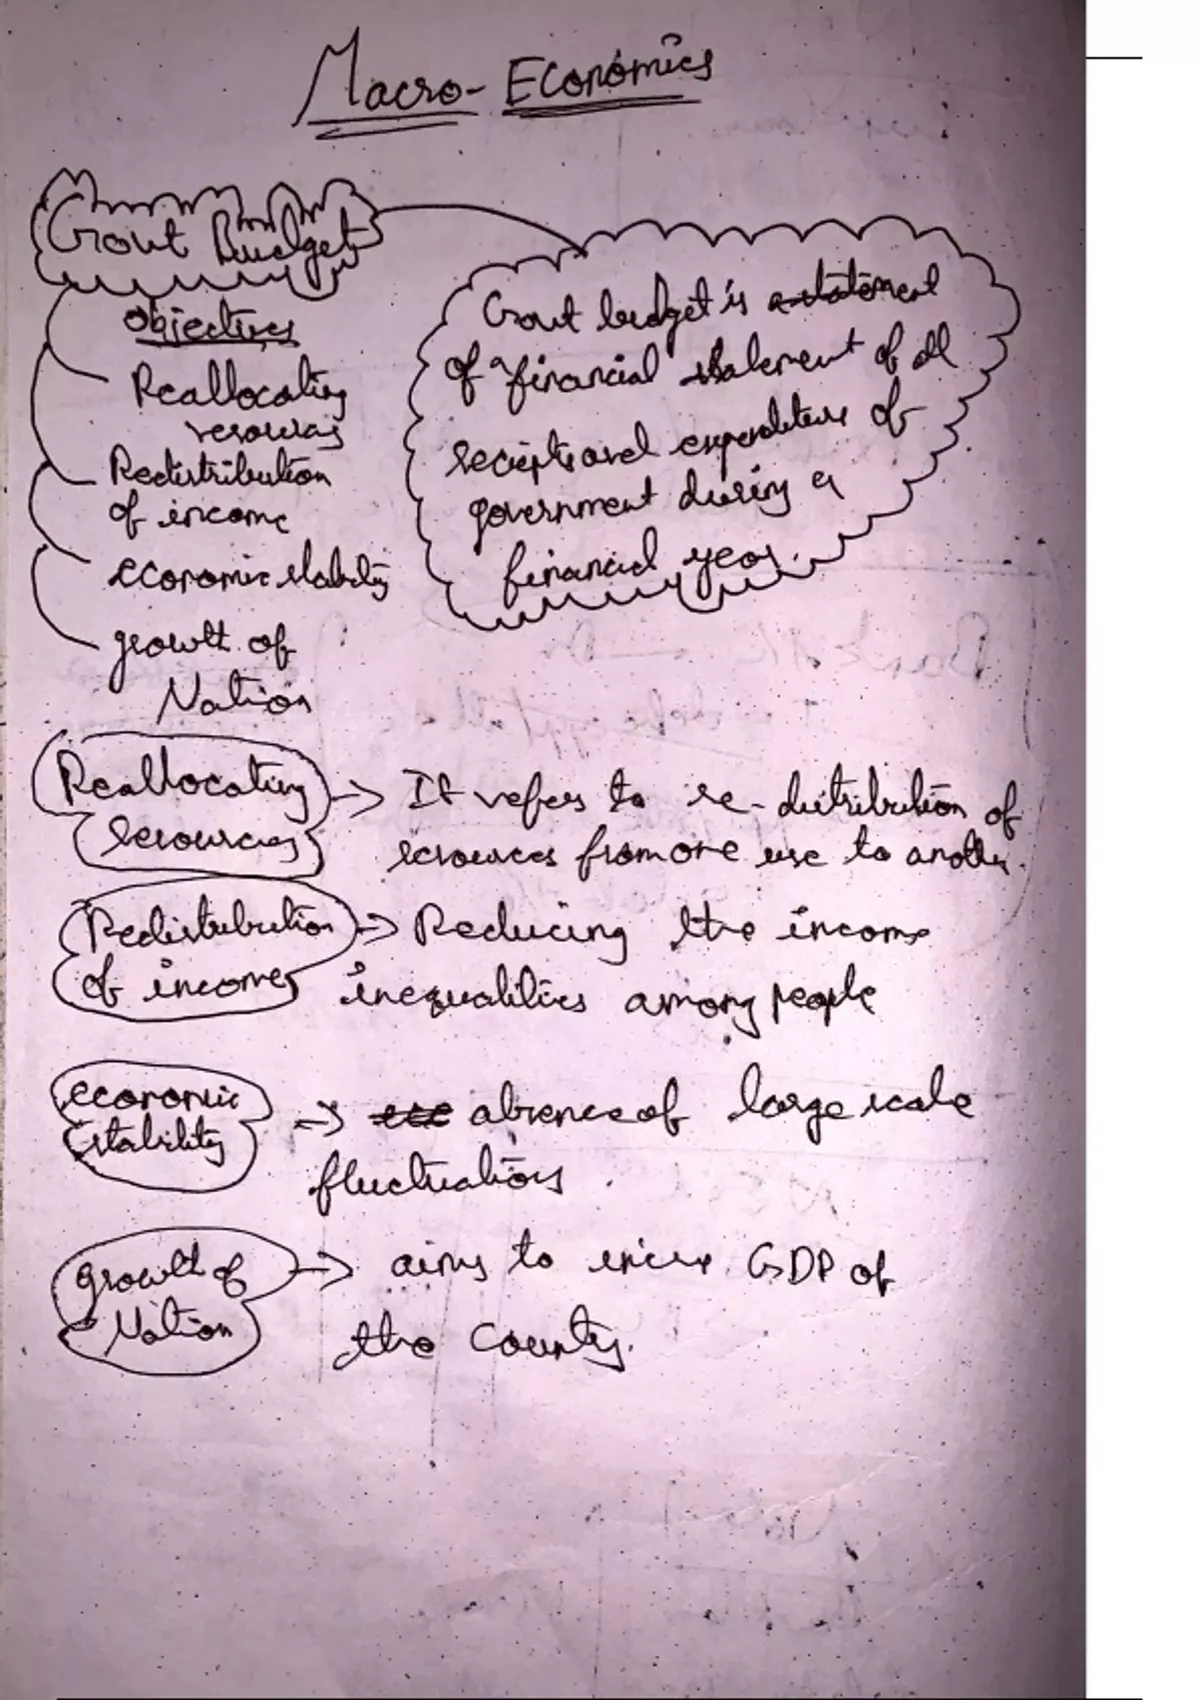 Macro-Economics
Govt Budget
Objectives
Reallocating
resources
Redistribution
of income
economic stability
growth of
Nation
Govt budget is a statement
of a financial statement of all
reciepts and expenditure of
government during a
financial year.
Reallocating
resources
→ It refers to re-distribution of
resources from one use to another.
Redistribution
of income
→ Reducing the income
inequalities among people
economic
stability
→ absence of large scale
fluctuations.
growth of
Nation
→ aims to GDP of
the country.